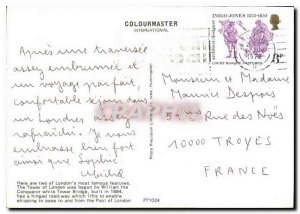 COLOURMASTER
INTERNATIONAL
INIGO JONES 1573-1652
architect designer
8p
COURT MASQUE COSTUMES
Après une traversée
assez embrumée et
un voyage parfait,
confortable séjour dans
un Londres
rafraîchi. Je vous
embrasse bien fort
ainsi que Sophie.
Monsieur et Madame
Maurice Despois
Rue des Noës
10000 TROYES
FRANCE
Here are two of London's most famous features.
The Tower of London was begun by William the
Conqueror while Tower Bridge, built in 1894,
has a hinged road-way which lifts to enable
shipping to pass to and from the Pool of London
PT1024
Photo Precision Limited, St. Ives, Huntingdon